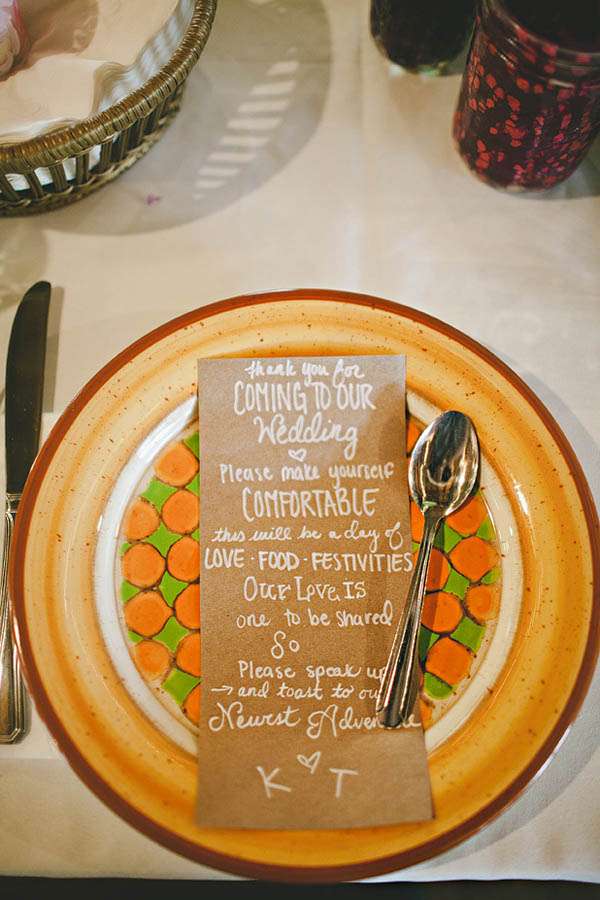 thank you for
COMING TO OUR
Wedding
Please make yourself
COMFORTABLE
this will be a day of
LOVE · FOOD · FESTIVITIES
OUR LOVE IS
one to be shared
So
Please speak up
→ and toast to our
Newest Adventure
K ♡ T